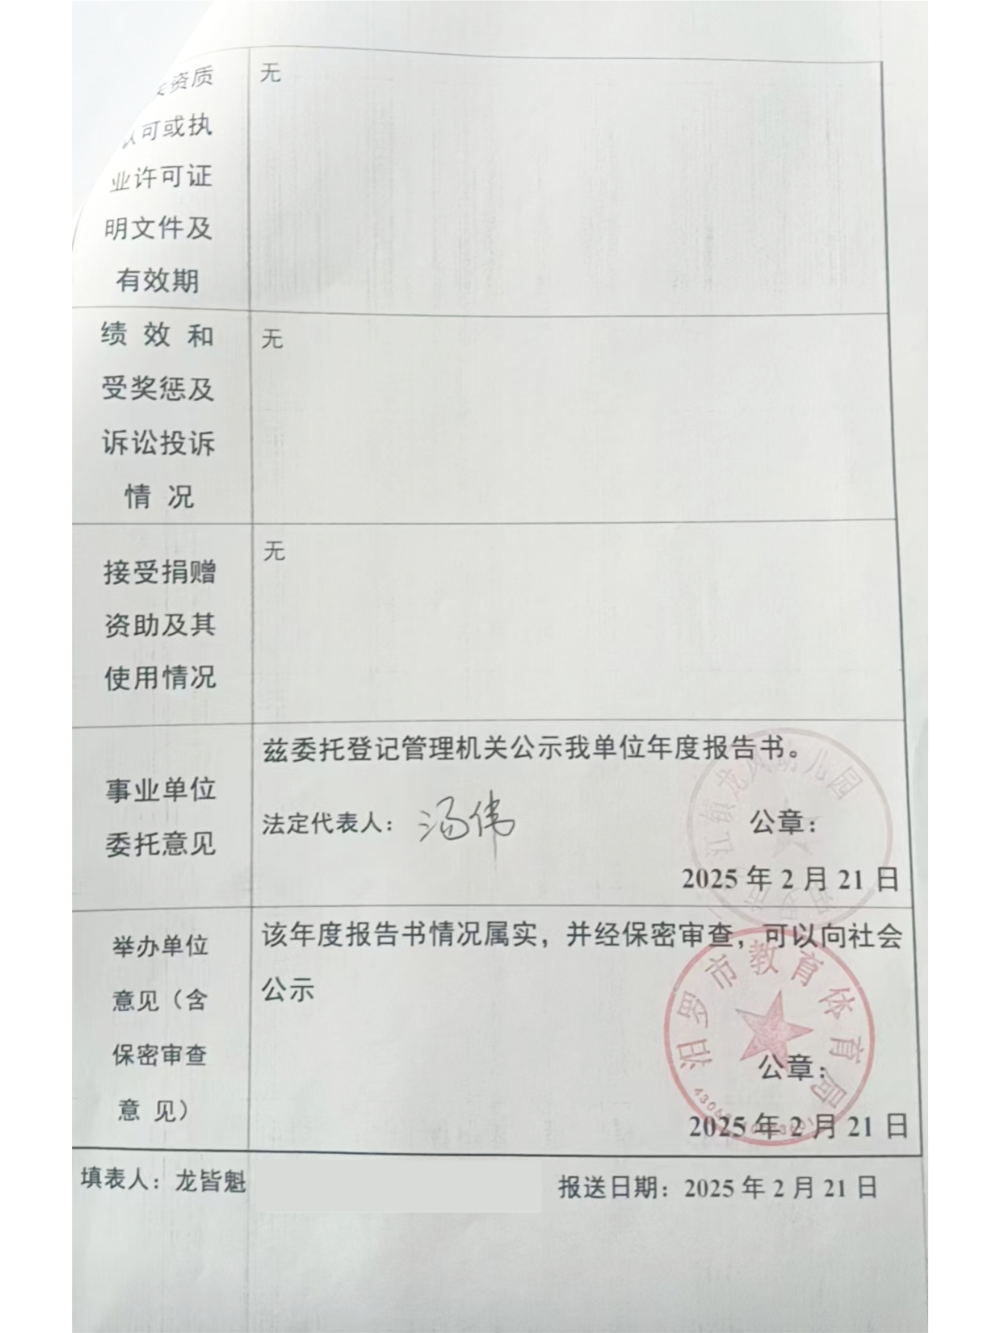 资质
无
可或执
业许可证
明文件及
有效期
绩 效 和
无
受奖惩及
诉讼投诉
情 况
接受捐赠
无
资助及其
使用情况
事业单位
委托意见
兹委托登记管理机关公示我单位年度报告书。
法定代表人：汤伟
公章：
2025 年 2 月 21 日
江镇龙凤幼儿园
举办单位
意见（含
保密审查
意 见）
该年度报告书情况属实，并经保密审查，可以向社会
公示
公章：
2025 年 2 月 21 日
汨罗市教育体育局
填表人：龙皆魁
报送日期：2025 年 2 月 21 日